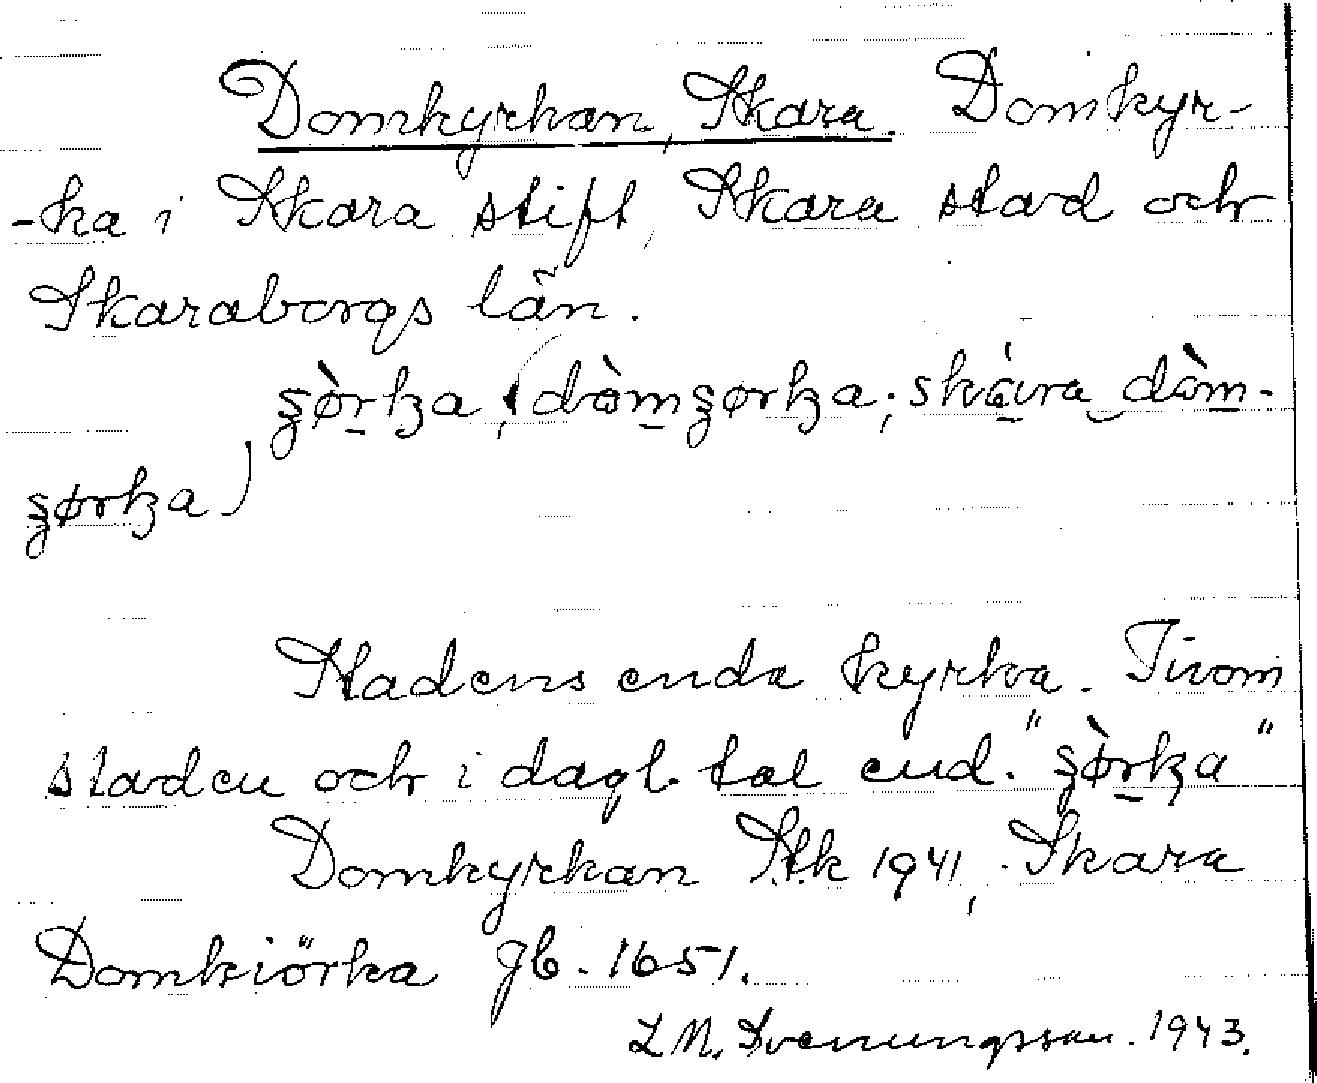 Domkyrkan, Skara. Domkyr-
-ka i Skara stift, Skara stad och
Skaraborgs län.
ʂø̀rka (dòmʂørka; skàra dòm-
ʂørka)
Stadens enda kyrka. Inom
staden och i dagl. tal end. "ʂø̀rka"
Domkyrkan Stk 1941, Skara
Domkiörka Jb. 1651.
L M. Svenungsson. 1943.